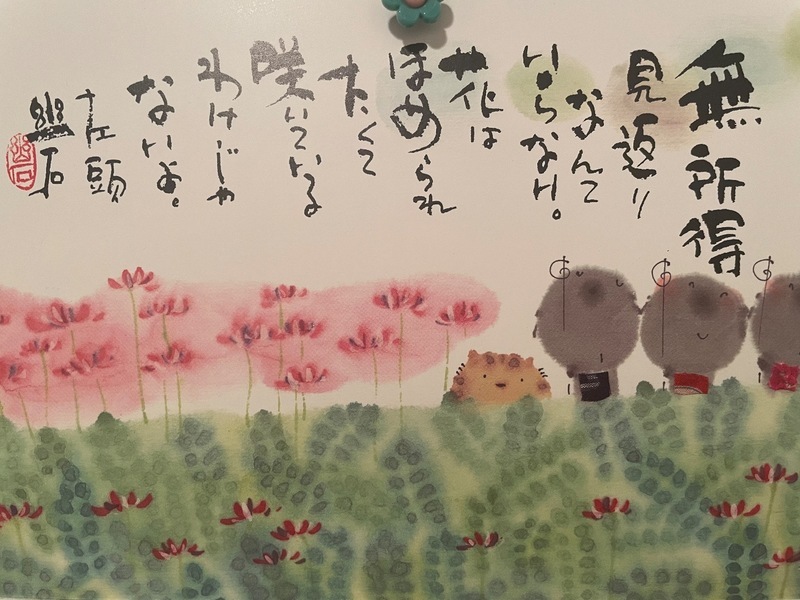 無所得
見返り
なんて
いらない。
花は
ほめられ
たくて
咲いている
わけじゃ
ないよ。
幽石